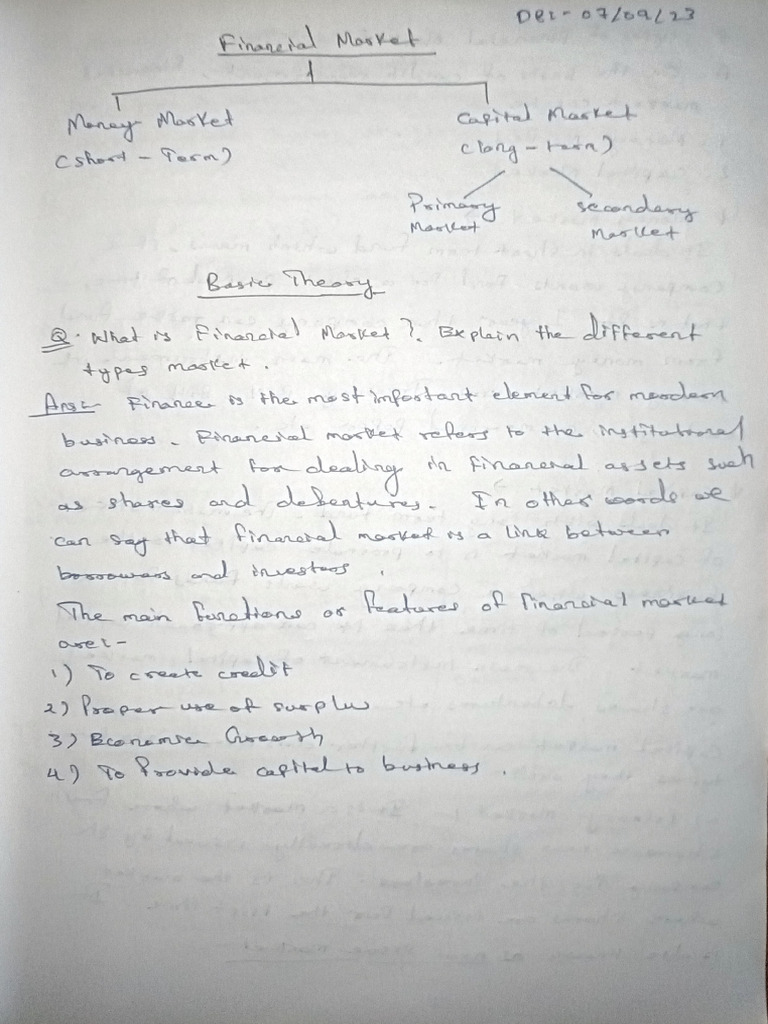 Dt:- 07/09/23
Financial Market
Money Market
(short - Term)
Capital Market
(long - term)
Primary
Market
Secondary
Market
Basic Theory
Q. What is Financial Market?. Explain the different
types market.
Ans:- Finance is the most important element for mordern
business. Financial market refers to the institutional
arrangement for dealing in financial assets such
as shares and debentures. In other words we
can say that financial market is a link between
borrowers and investors.
The main functions or features of financial market
are:-
1) To create credit
2) Proper use of surplus
3) Economic Growth
4) To Provide capital to business.